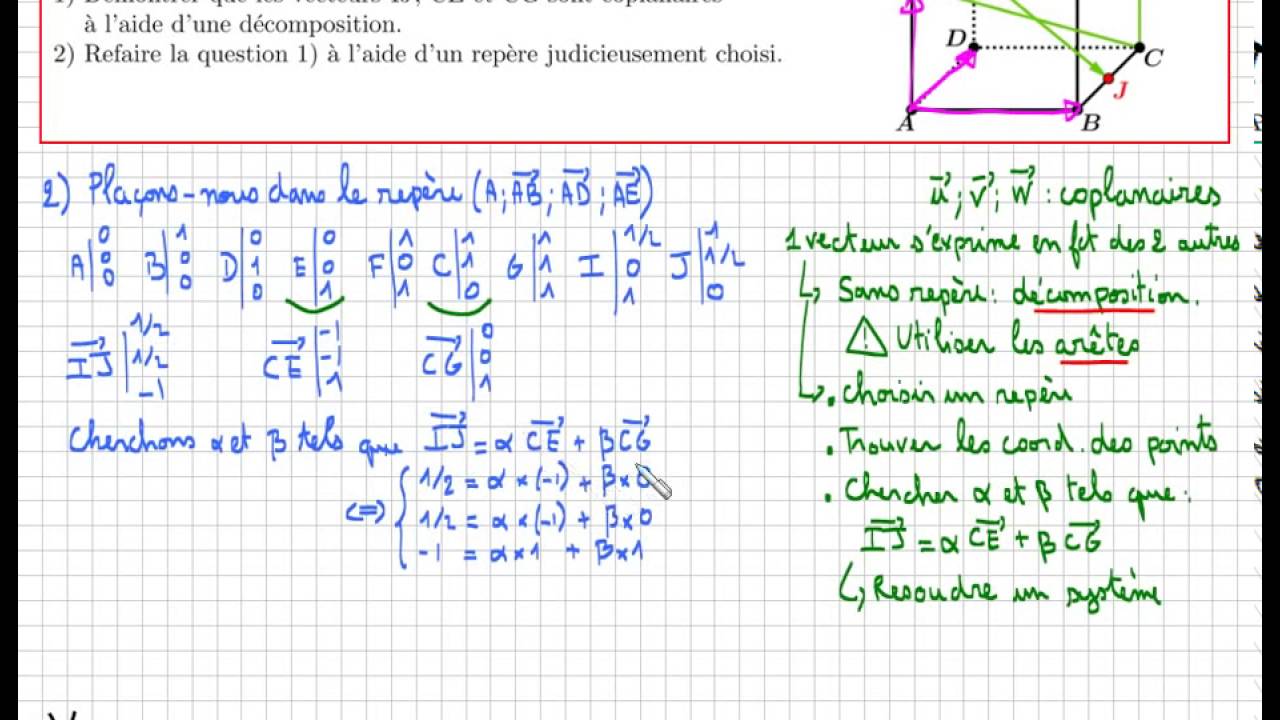 à l'aide d'une décomposition.
2) Refaire la question 1) à l'aide d'un repère judicieusement choisi.
D
C
J
A
B
2) Plaçons-nous dans le repère (A; AB; AD; AE)
A | 0 0 0 B | 1 0 0 D | 0 1 0 E | 0 0 1 F | 1 0 1 C | 1 1 0 G | 1 1 1 I | 1/2 0 1 J | 1 1/2 0
IJ | 1/2 1/2 -1 CE | -1 -1 1 CG | 0 0 1
Cherchons α et β tels que IJ = α CE + β CG
⇔ { 1/2 = α × (-1) + β × 0
1/2 = α × (-1) + β × 0
-1 = α × 1 + β × 1
u; v; w : coplanaires
1 vecteur s'exprime en fct des 2 autres
↳ Sans repère: décomposition.
⚠ Utiliser les arêtes
↳ • choisir un repère
• Trouver les coord. des points
• Chercher α et β tels que:
IJ = α CE + β CG
↳ Resoudre un système